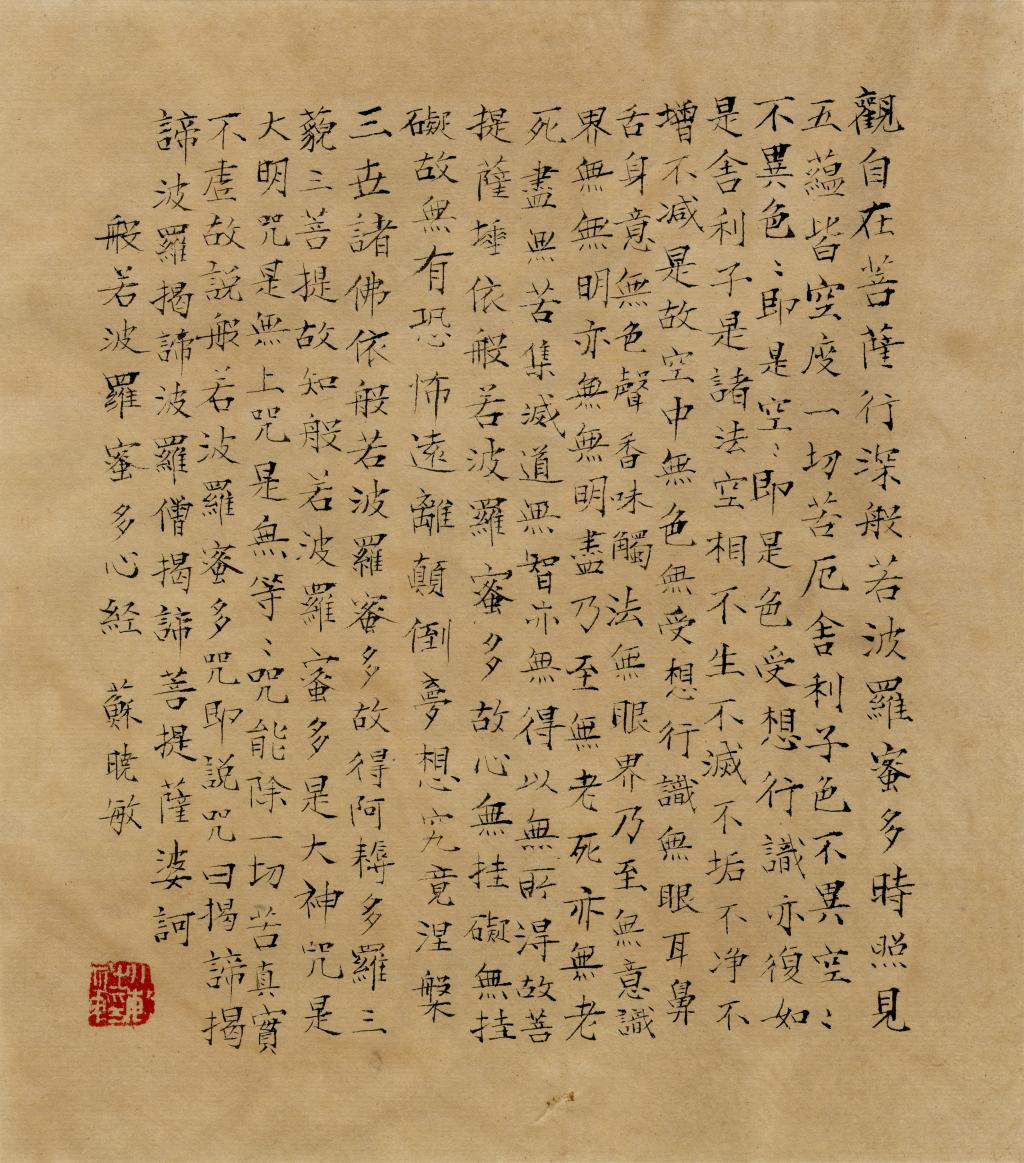 觀自在菩薩行深般若波羅蜜多時照見
五蘊皆空度一切苦厄舍利子色不異空〻
不異色〻即是空〻即是色受想行識亦復如
是舍利子是諸法空相不生不滅不垢不净不
增不减是故空中無色無受想行識無眼耳鼻
舌身意無色聲香味觸法無眼界乃至無意識
界無無明亦無無明盡乃至無老死亦無老
死盡無苦集滅道無智亦無得以無所得故菩
提薩埵依般若波羅蜜多故心無挂礙無挂
礙故無有恐怖遠離顛倒夢想究竟涅槃
三世諸佛依般若波羅蜜多故得阿耨多羅三
藐三菩提故知般若波羅蜜多是大神咒是
大明咒是無上咒是無等〻咒能除一切苦真實
不虛故説般若波羅蜜多咒即説咒曰揭諦揭
諦波羅揭諦波羅僧揭諦菩提薩婆訶
般若波羅蜜多心経 蘇曉敏